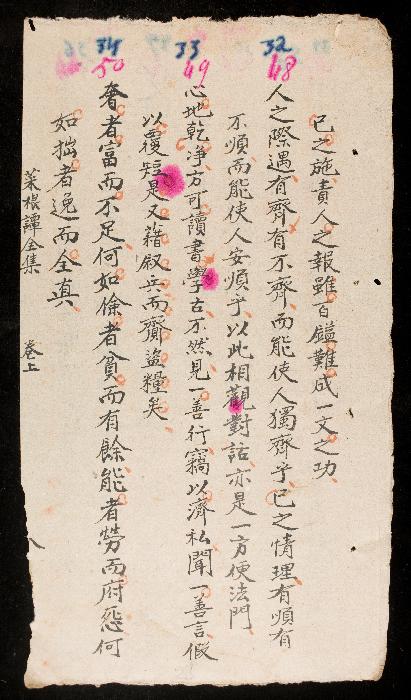 32 33 34
48 49 50
己之施責人之報雖百鎰難成一文之功
人之際遇有齊有不齊而能使人獨齊乎己之情理有順有
不順而能使人安順乎以此相觀對話亦是一方便法門
心地乾净方可讀書學古不然見一善行竊以濟私聞一善言假
以覆短是又藉寇兵而齎盜糧矣
奢者富而不足何如儉者貧而有餘能者勞而府怨何
如拙者逸而全真
菜根譚全集 卷上 八